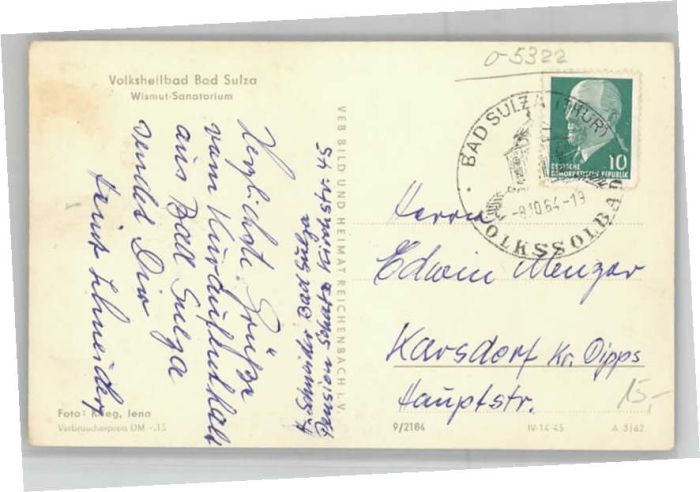 o-5322
Volksheilbad Bad Sulza
Wismut-Sanatorium
Herzlichst. Grüße
vom Kuraufenthalt
aus Bad Sulza
sendet Dir
Schneider
H. Schneider Bad Sulza
Pension Schatz Kirchstr. 45
VEB BILD UND HEIMAT REICHENBACH I. V.
BAD SULZA (THÜR)
-8.10.64-19
VOLKSSOLBAD
10
DEUTSCHE
DEMOKRATISCHE REPUBLIK
Herrn
Edwin Menzer
Karsdorf Kr. Dipps
Hauptstr.
15,-
Foto: Krieg, Jena
Verbraucherpreis DM -.15
9/2184
IV-14-45
A 3/62